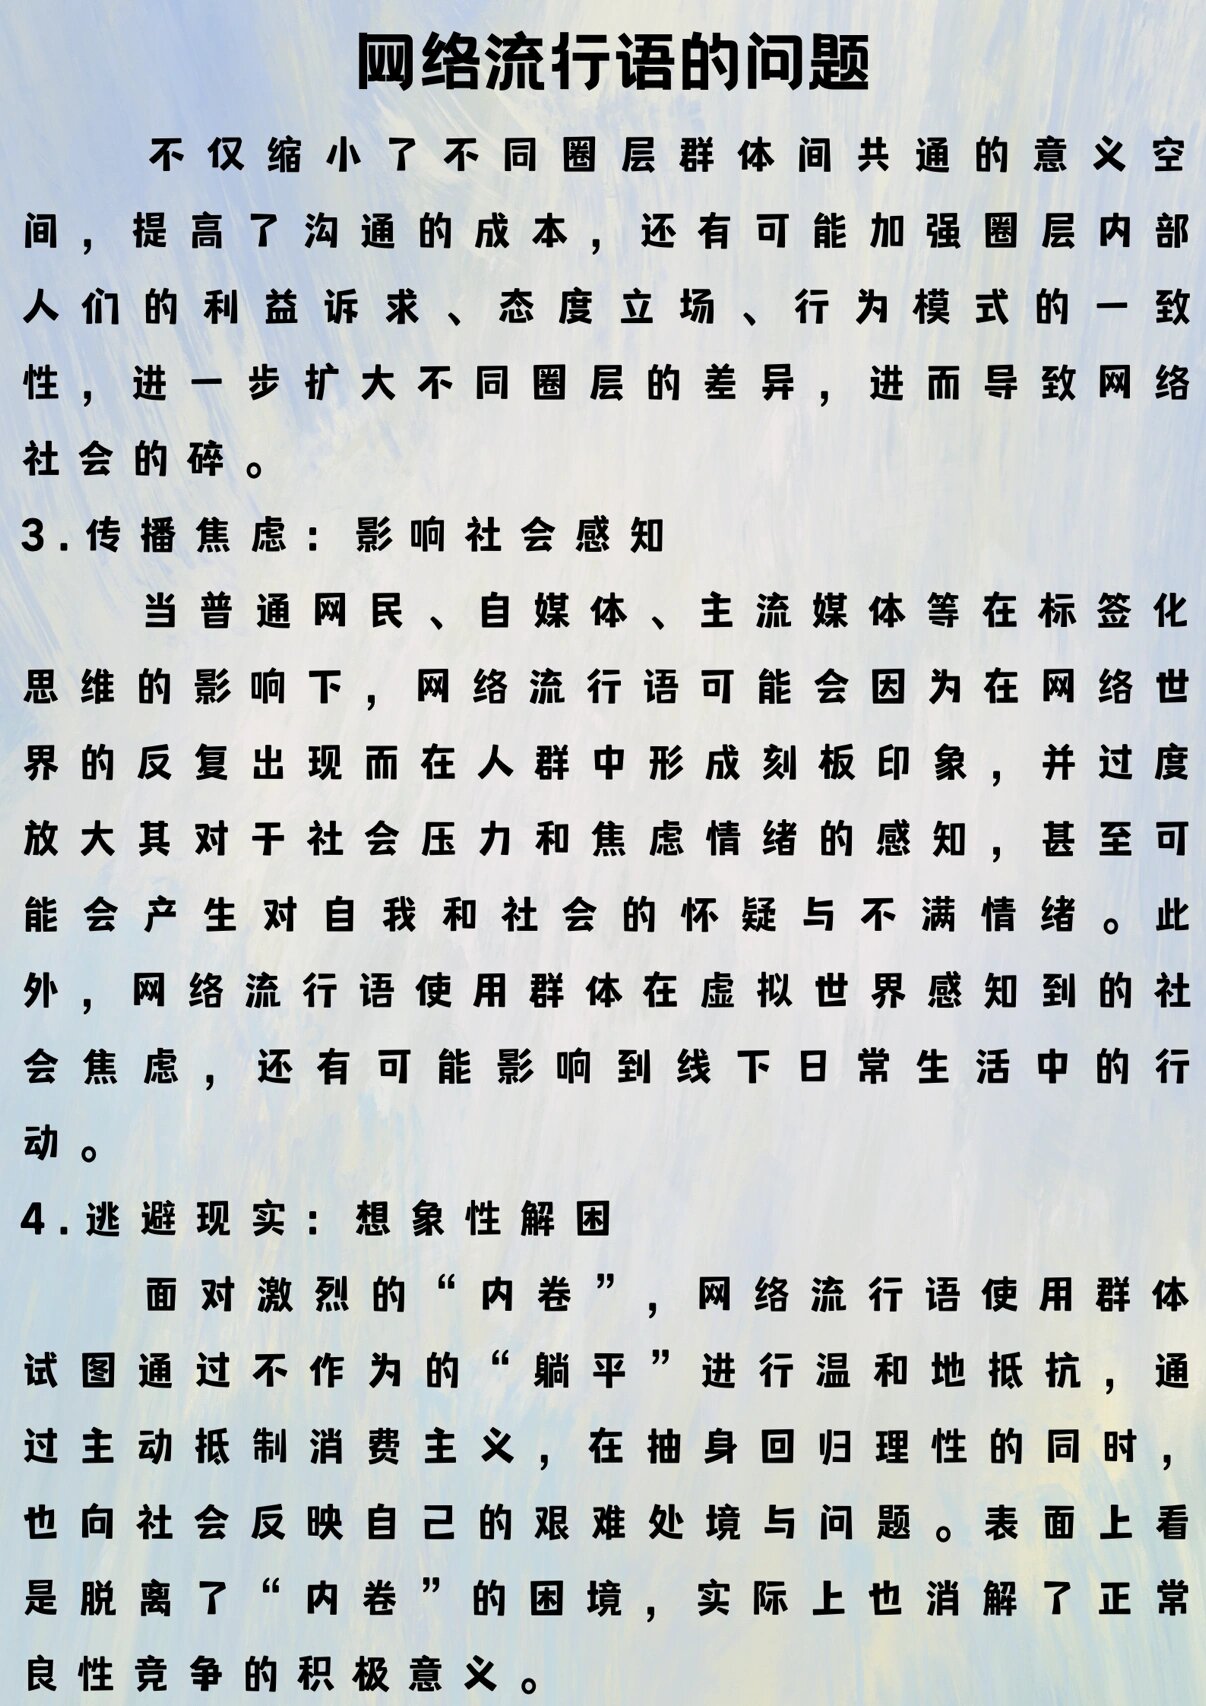 网络流行语的问题
不仅缩小了不同圈层群体间共通的意义空
间，提高了沟通的成本，还有可能加强圈层内部
人们的利益诉求、态度立场、行为模式的一致
性，进一步扩大不同圈层的差异，进而导致网络
社会的碎。
3.传播焦虑：影响社会感知
当普通网民、自媒体、主流媒体等在标签化
思维的影响下，网络流行语可能会因为在网络世
界的反复出现而在人群中形成刻板印象，并过度
放大其对于社会压力和焦虑情绪的感知，甚至可
能会产生对自我和社会的怀疑与不满情绪。此
外，网络流行语使用群体在虚拟世界感知到的社
会焦虑，还有可能影响到线下日常生活中的行
动。
4.逃避现实：想象性解困
面对激烈的“内卷”，网络流行语使用群体
试图通过不作为的“躺平”进行温和地抵抗，通
过主动抵制消费主义，在抽身回归理性的同时，
也向社会反映自己的艰难处境与问题。表面上看
是脱离了“内卷”的困境，实际上也消解了正常
良性竞争的积极意义。